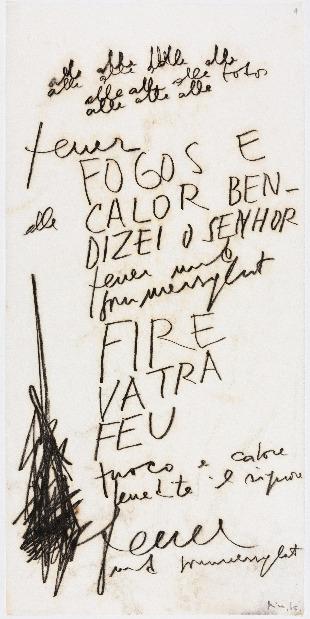 alle alle alle alle
alle alle alle alle fotos
alle alle alle
feuer
FOGOS E
CALOR BEN-
alle
DIZEI O SENHOR
feuer und
sommersglut
FIRE
VATRA
FEU
fuoco e calore
benedite il signore
feuer
und sommersglut